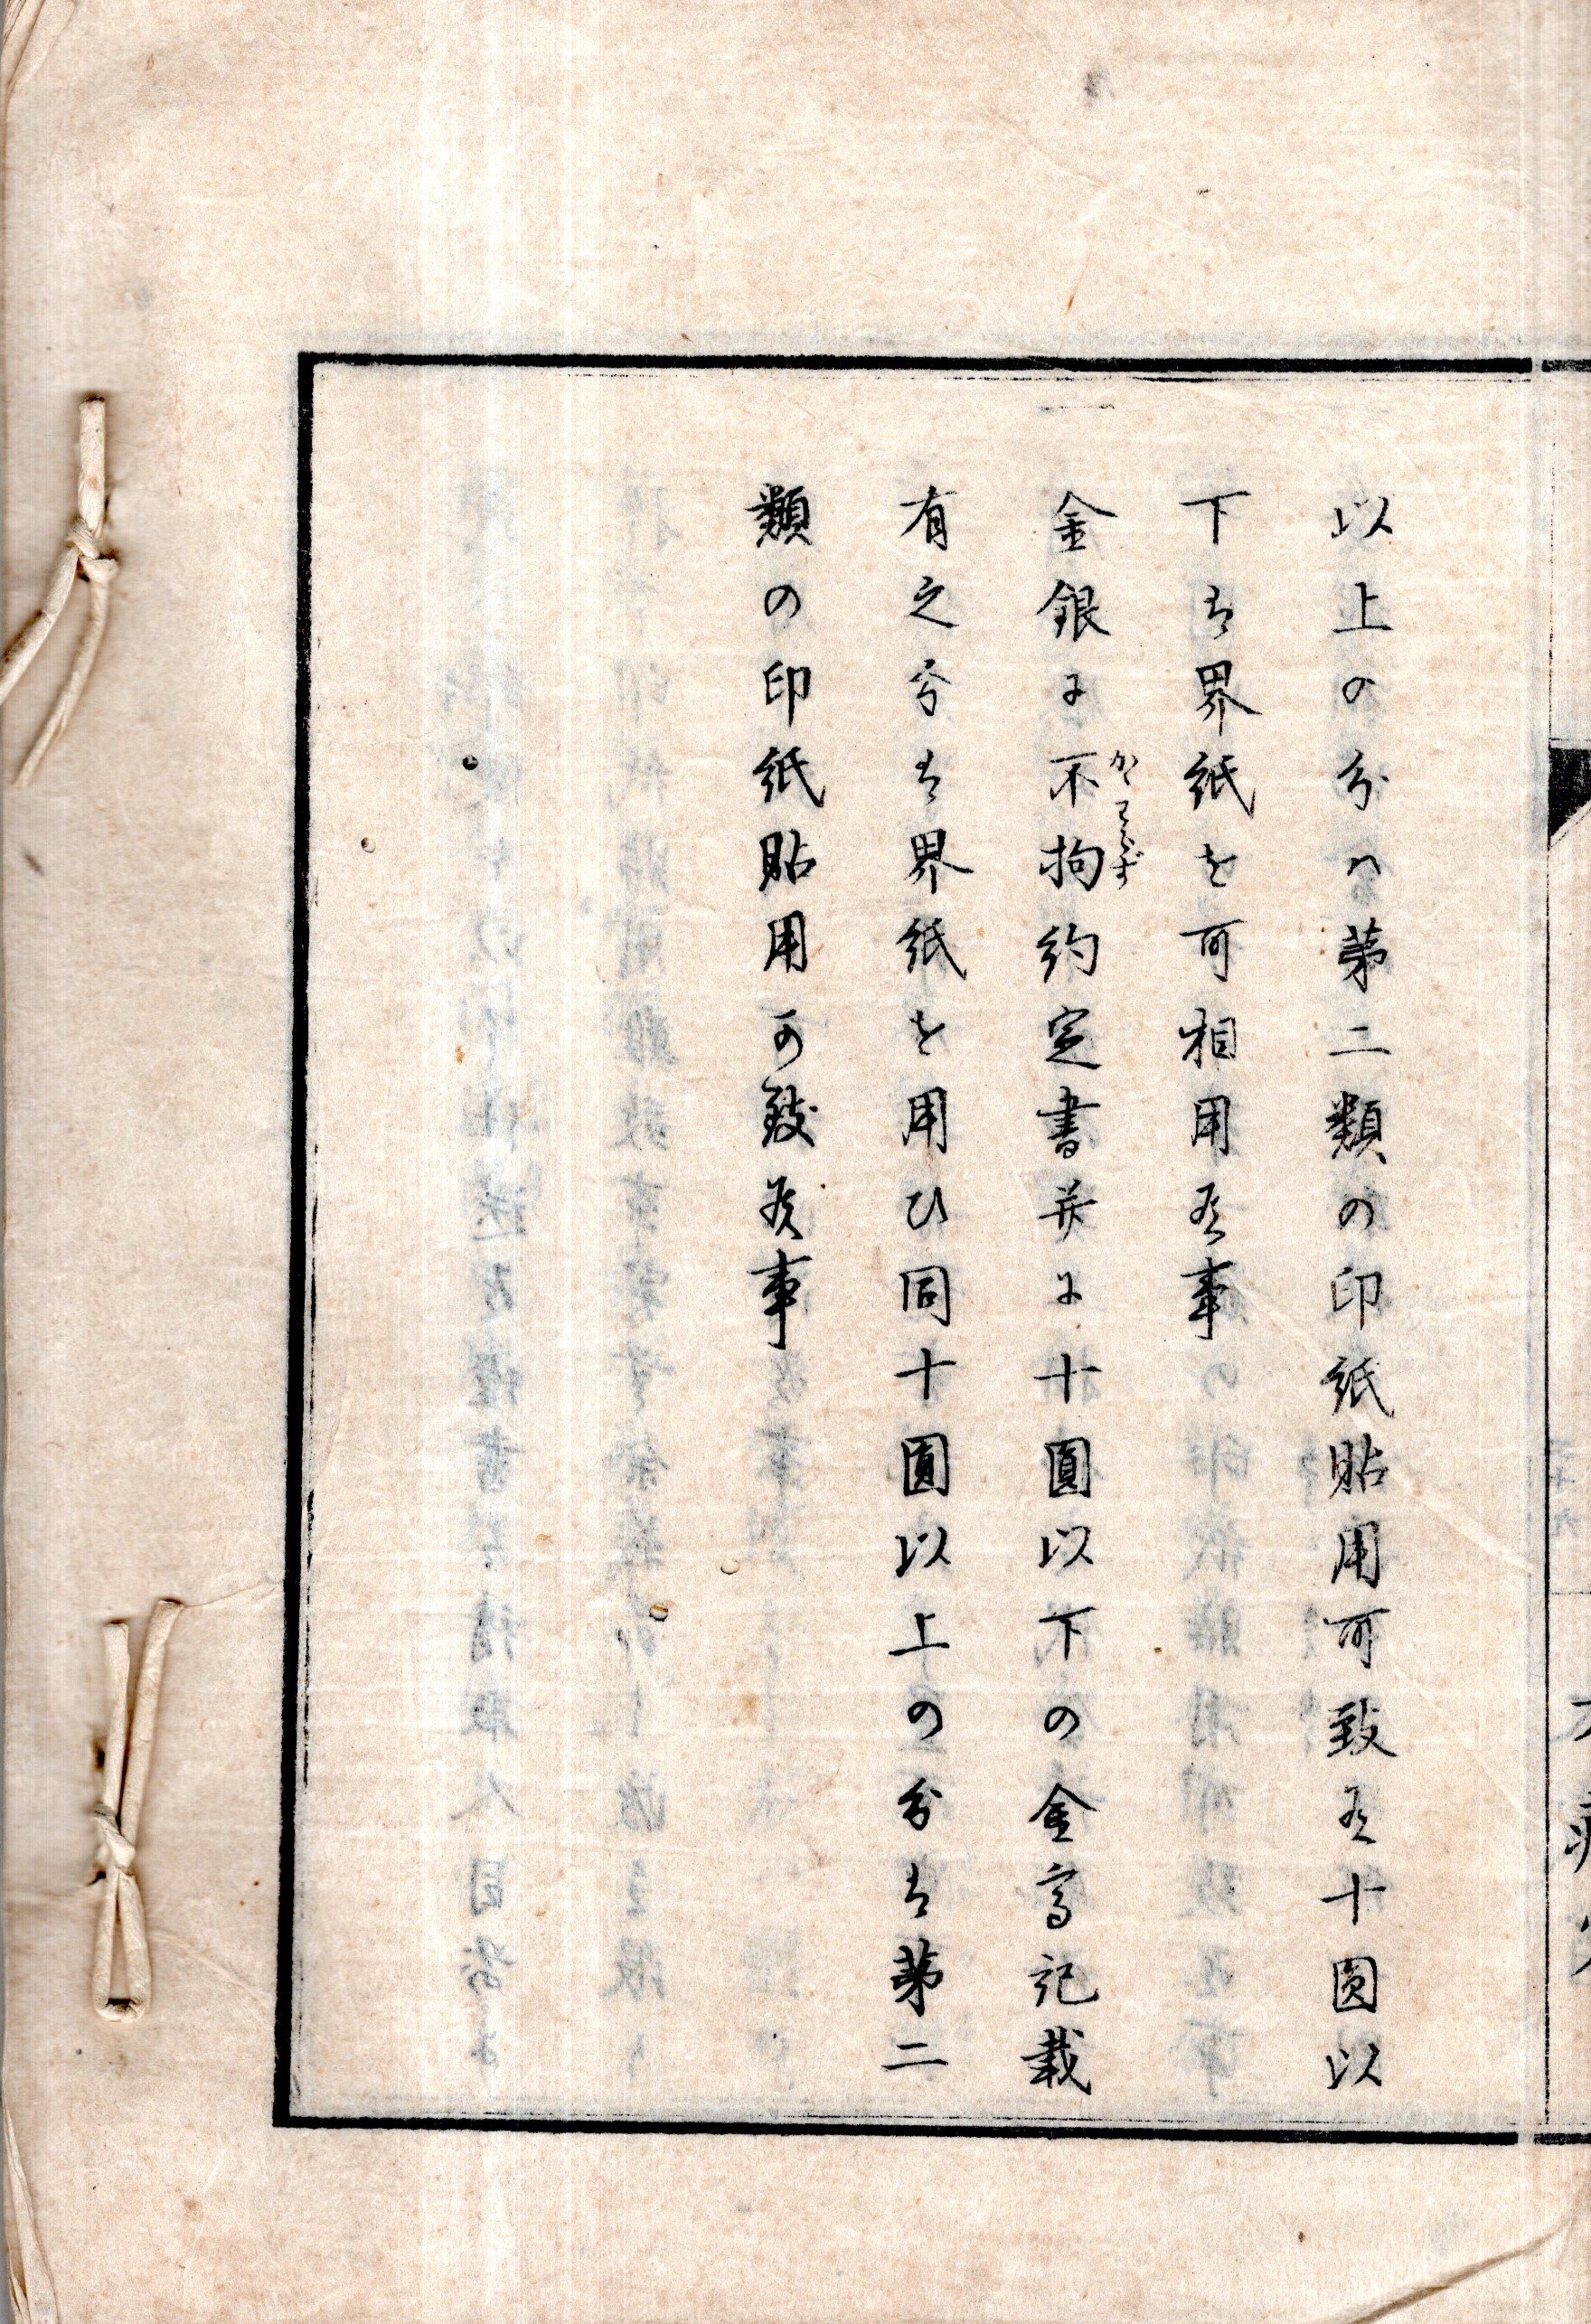 以上の分ハ第二類の印紙貼用可致候十圓以
下は界紙を可相用候事
金銀に不拘約定書并に十圓以下の金高記載
かゝわらず
有之分は界紙を用ひ同十圓以上の分は第二
類の印紙貼用可致候事
大蔵省